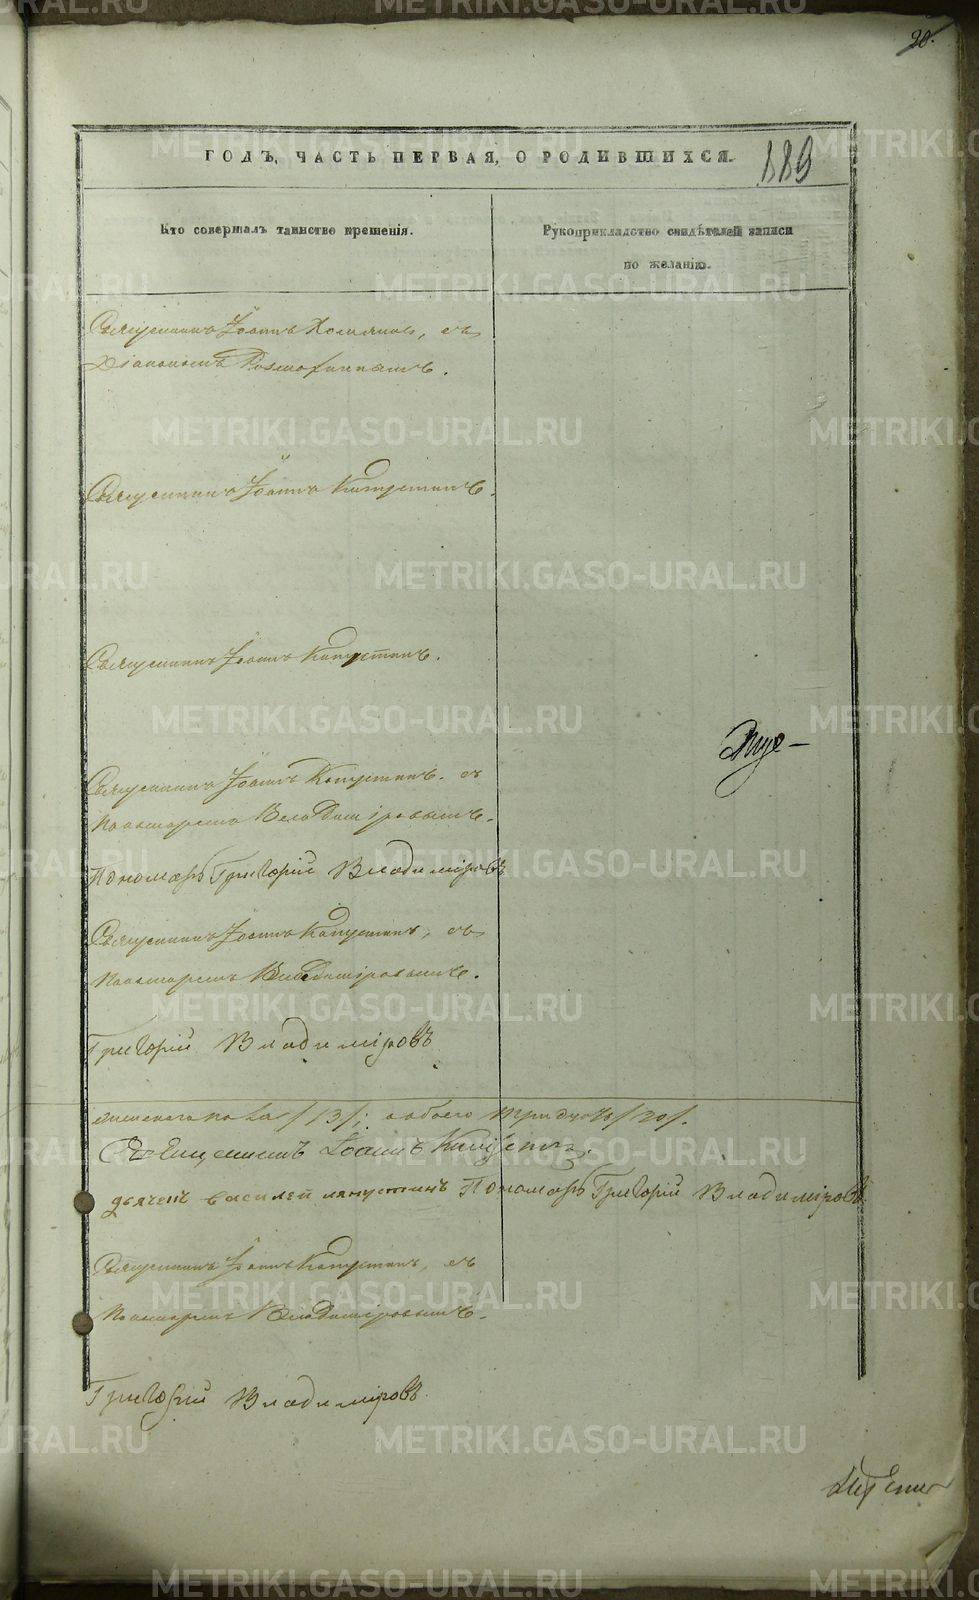 20.
ГОДЪ, ЧАСТЬ ПЕРВАЯ, О РОДИВШИХСЯ.
889
Кто совершалъ таинство крещенія.
Рукоприкладство свидѣтелей записи
по желанію.
Священникъ Іоаннъ съ
Діакономъ
Священникъ Іоаннъ Капустинъ.
Священникъ Іоаннъ Капустинъ.
Священникъ Іоаннъ Капустинъ. съ
Пономаремъ Владиміровымъ.
Пономарь Григорій Владиміровъ
Священникъ Іоаннъ Капустинъ, съ
Пономаремъ Владиміровымъ.
Григорій Владиміровъ
женскаго пола /13/; а обоего тридцать /30/.
Священникъ Іоаннъ Капустинъ.
дьячекъ василей капустинъ Пономарь Григорій Владиміровъ
Священникъ Іоаннъ Капустинъ, съ
Пономаремъ Владиміровымъ.
Григорій Владиміровъ
METRIKI.GASO-URAL.RU